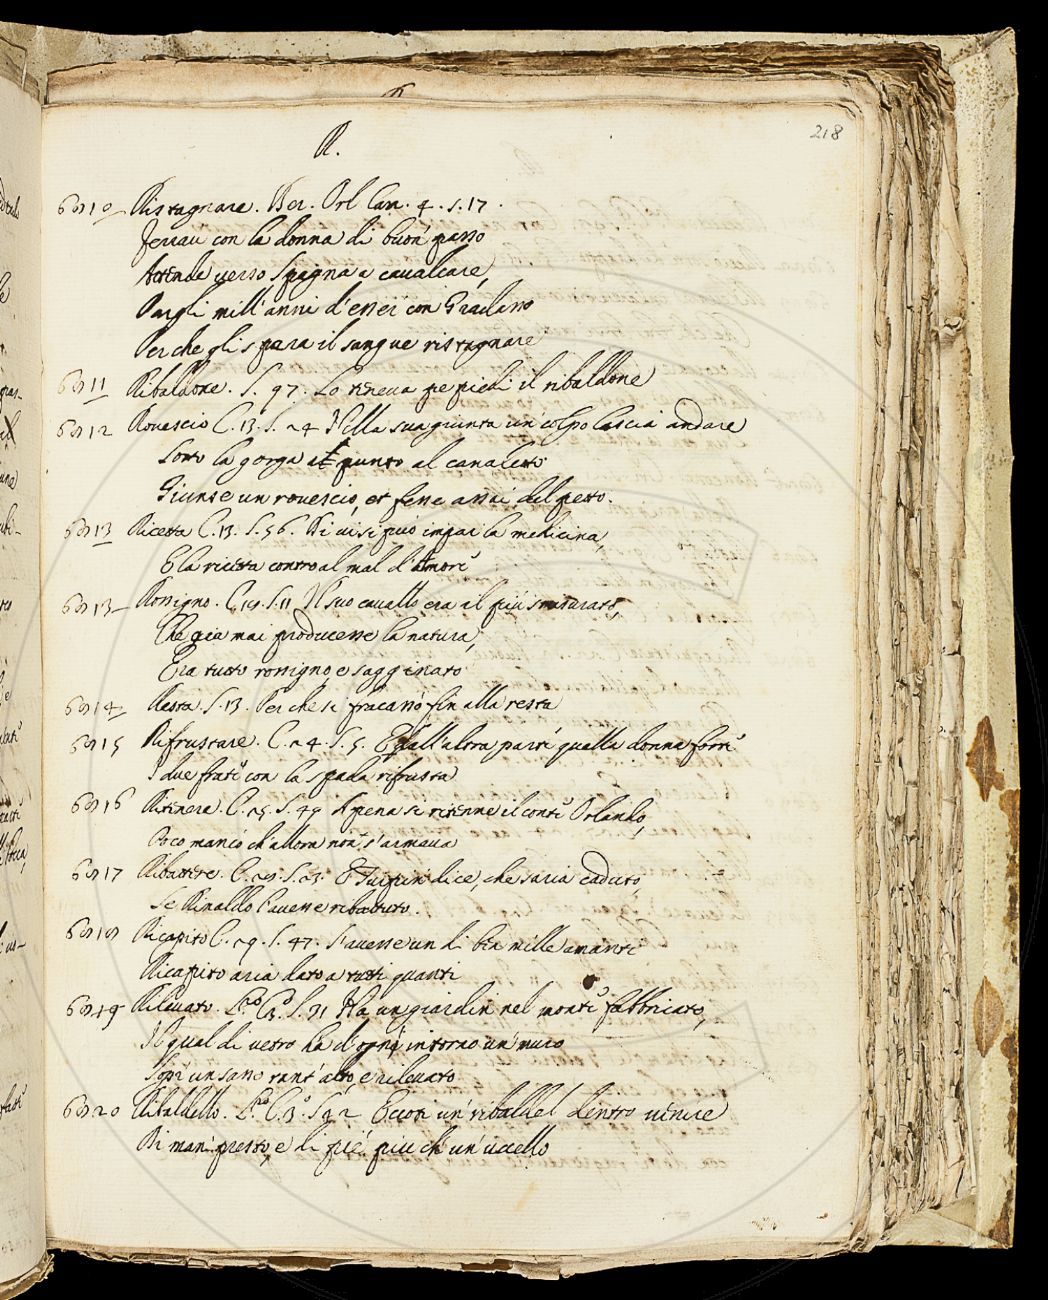 218
R.
6810 Ristagnare. Ber. Orl. Can. 4. S. 17.
Ferrau con la donna di buon passo
Attende verso Spagna a cavalcare,
Pargli mill'anni d'esser con Gradasso
Perche gli spera il sangue ristagnare
6811 Ribaldone. S. 97. Lo teneua pe piedi il ribaldone
6812 Rouescio C. 13. S. 24 Nella sua giunta un colpo lascia andare
Sotto la gorga at punto al canaletto
Giunse un rouescio, et fene assai del petto.
6813 Ricetta C. 13. S. 56. Di ui si puo impar la medicina,
E la ricetta contro al mal d'Amore
6813 Rossigno. C. S. 11 Il suo cauallo era il più smisurato,
Che gia mai producesse la natura,
Era tutto rossigno, e sagginato
6814 Resta S. 13. Perche si fracassò fin alla resta
6815 Rifrustare. C. 24. S. 5. E dall'altra parte quella donna forte
I due frati con la spada rifrusta
6816 Ritenere. C. 25. S. 49 A pena si ritenne il conte Orlando,
Poco mancò ch'allora non s'armaua
6817 Ribattere. C. S. 23. E Turpin dice, che saria caduto,
Se Rinaldo l'auesse ribattuto.
6818 Ricapito C. 29. S. 47. S'auesse un di ben mille amanti
Ricapito aria dato a tutti quanti
6819 Rileuato. S. 31 Ha un giardin nel monte fabbricato,
Il qual di vetro ha d'ogni intorno un muro
Sopr' un sasso tant'alto e rileuato
6820 Ribaldello. Eccoti un ribaldel dentro venire
Di man presto, e di piè più ch'un uccello